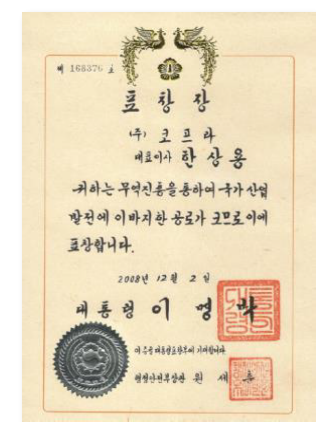 제 168376 호
표 창 장
(주) 코 프 라
대표이사 한 상 용
귀하는 무역진흥을 통하여 국가 산업
발전에 이바지한 공로가 크므로 이에
표창합니다.
2008년 12월 2일
대통령 이 명 박
이 증을 대통령표창부에 기입합니다
행정안전부장관 원 세 훈